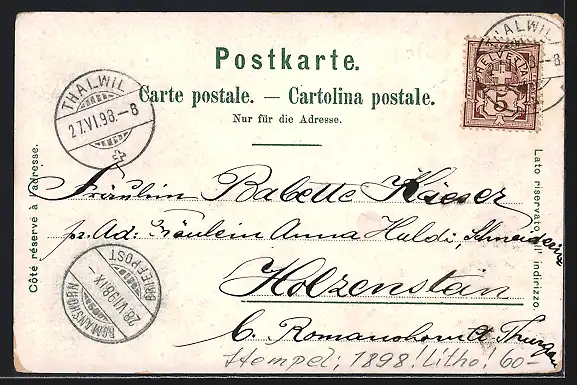 Postkarte.
Carte postale. — Cartolina postale.
Nur für die Adresse.
THALWIL
27.VI.98.-8
THALWIL
-8
HELVETIA
5
Côté réservé à l'adresse.
Lato riservato all' indirizzo.
Fräulein Babette Kaeser
pr. Ad: Fräulein Anna Haldi, Schneiderin
Holzenstein
b. Romanshorn Ct. Thurgau
ROMANSHORN
28.VI.98.IX-
BRIEFPOST
Stempel: 1898! Litho! 60-